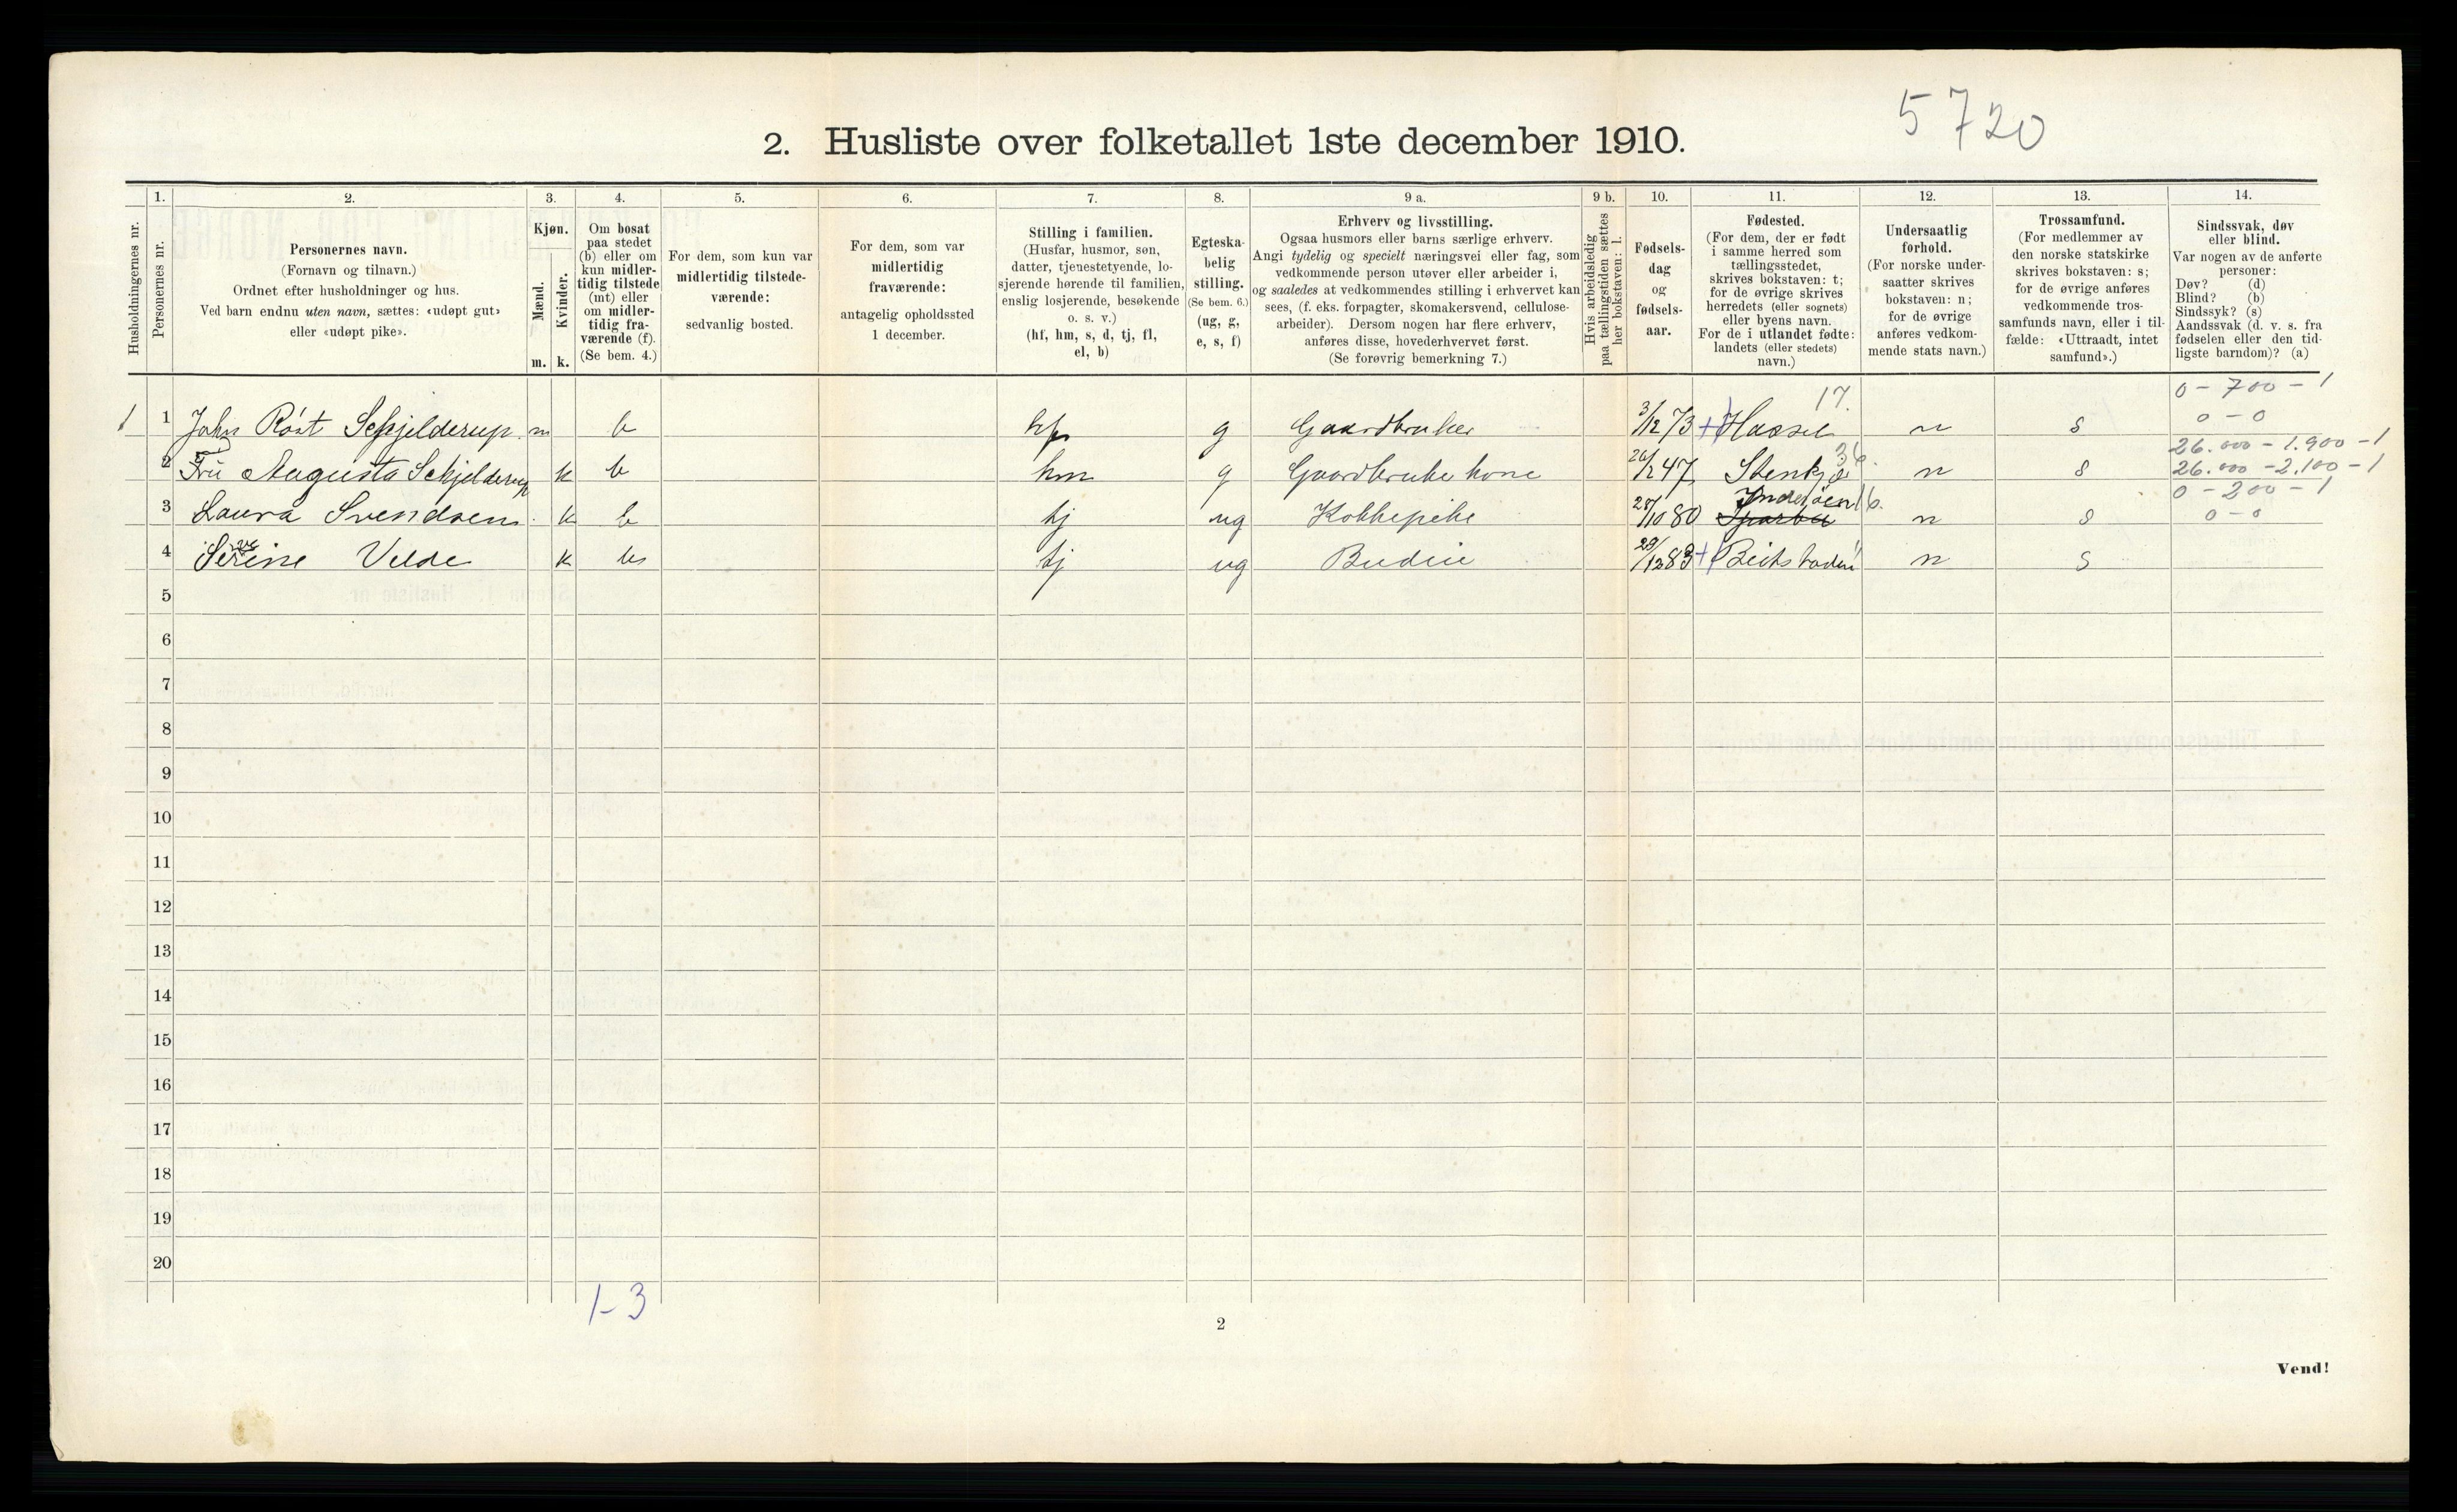 5720
2. Husliste over folketallet 1ste december 1910.
Husholdningernes nr.
1.
Personernes nr.
2.
Personernes navn.
(Fornavn og tilnavn.)
Ordnet efter husholdninger og hus.
Ved barn endnu uten navn, sættes: «udøpt gut»
eller «udøpt pike».
3.
Kjøn.
Mænd.
Kvinder.
m. k.
4.
Om bosat
paa stedet
(b) eller om
kun midler-
tidig tilstede
(mt) eller
om midler-
tidig fra-
værende (f).
(Se bem. 4.)
5.
For dem, som kun var
midlertidig tilstede-
værende:
sedvanlig bosted.
6.
For dem, som var
midlertidig
fraværende:
antagelig opholdssted
1 december.
7.
Stilling i familien.
(Husfar, husmor, søn,
datter, tjenestetyende, lo-
sjerende hørende til familien,
enslig losjerende, besøkende
o. s. v.)
(hf, hm, s, d, tj, fl,
el, b)
8.
Egteska-
belig
stilling.
(Se bem. 6.)
(ug, g,
e, s, f)
9 a.
Erhverv og livsstilling.
Ogsaa husmors eller barns særlige erhverv.
Angi tydelig og specielt næringsvei eller fag, som
vedkommende person utøver eller arbeider i,
og saaledes at vedkommendes stilling i erhvervet kan
sees, (f. eks. forpagter, skomakersvend, cellulose-
arbeider). Dersom nogen har flere erhverv,
anføres disse, hovederhvervet først.
(Se forøvrig bemerkning 7.)
9 b.
Hvis arbeidsledig
paa tællingstiden sættes
her bokstaven: l.
10.
Fødsels-
dag
og
fødsels-
aar.
11.
Fødested.
(For dem, der er født
i samme herred som
tællingsstedet,
skrives bokstaven: t;
for de øvrige skrives
herredets (eller sognets)
eller byens navn.
For de i utlandet fødte:
landets (eller stedets)
navn.)
12.
Undersaatlig
forhold.
(For norske under-
saatter skrives
bokstaven: n;
for de øvrige
anføres vedkom-
mende stats navn.)
13.
Trossamfund.
(For medlemmer av
den norske statskirke
skrives bokstaven: s;
for de øvrige anføres
vedkommende tros-
samfunds navn, eller i til-
fælde: «Uttraadt, intet
samfund».)
14.
Sindssvak, døv
eller blind.
Var nogen av de anførte
personer:
Døv? (d)
Blind? (b)
Sindssyk? (s)
Aandssvak (d. v. s. fra
fødselen eller den tid-
ligste barndom)? (a)
17. 0 - 700 - 1
1 1 John Röst Schjelderup m b hf g Gaardbruker 3/12 73 + Hassel n s 0 - 0
36. 26.000 - 1.900 - 1
2 Fru Augusta Schjelderup k b hm g Gaardbruke kone 26/2 47 Stenkjær n s 26.000 - 2.100 - 1
Inderöen 16. 0 - 200 - 1
3 Laura Svendsen k b tj ug Kokkepike 28/10 80 Sparbu n s 0 - 0
4 Serine Velde k b tj ug Budeie 29/12 83 + Beitstaden n s
5
6
7
8
9
10
11
12
13
14
15
16
17
18
19
20
1-3
2
Vend!